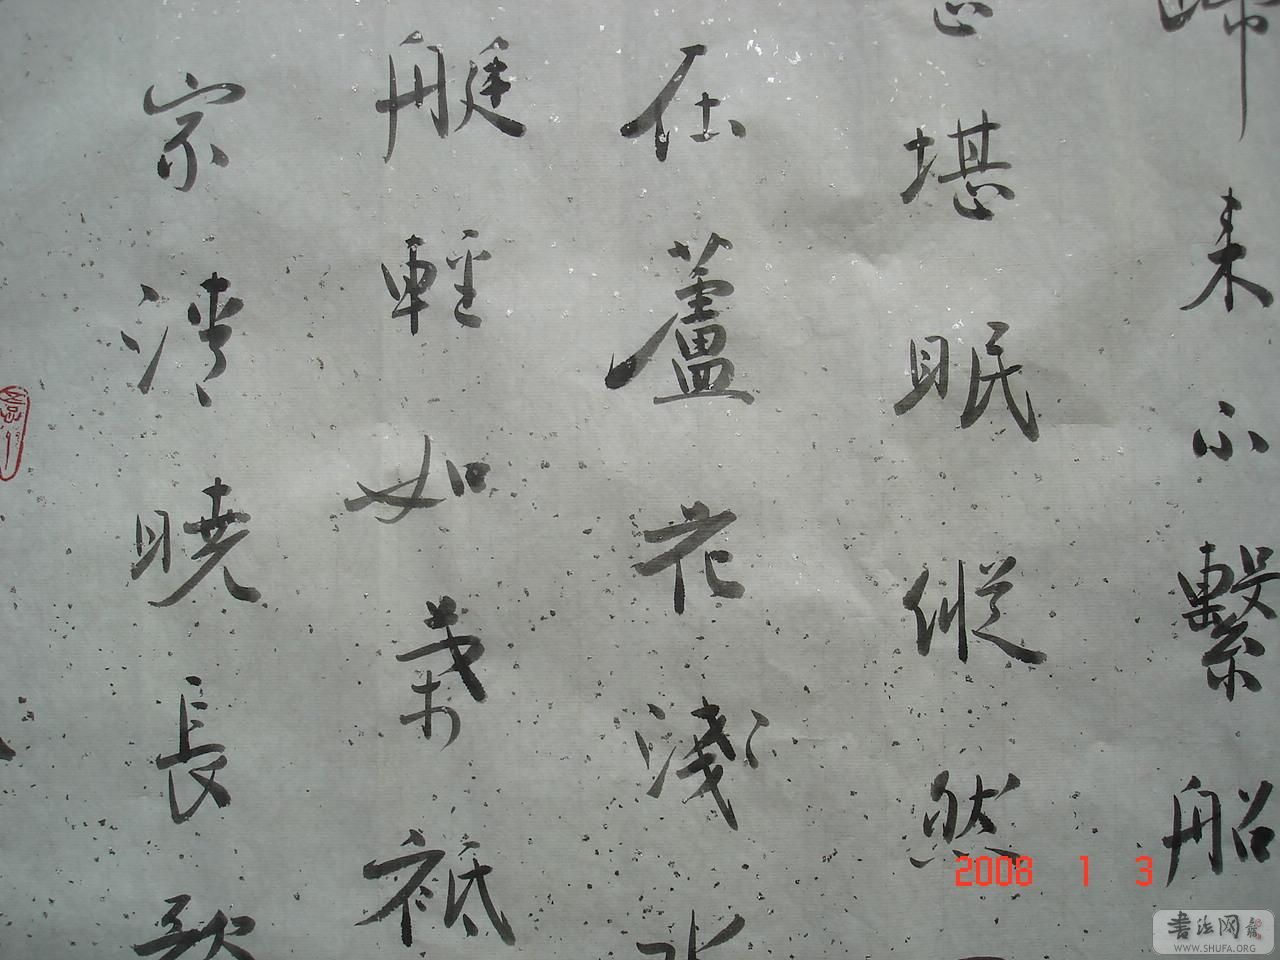 歸来不繫船
正堪眠縱然
在蘆花淺水
艇輕如葉祗
曉長歌
2008 1 3
書法网
WWW.SHUFA.ORG